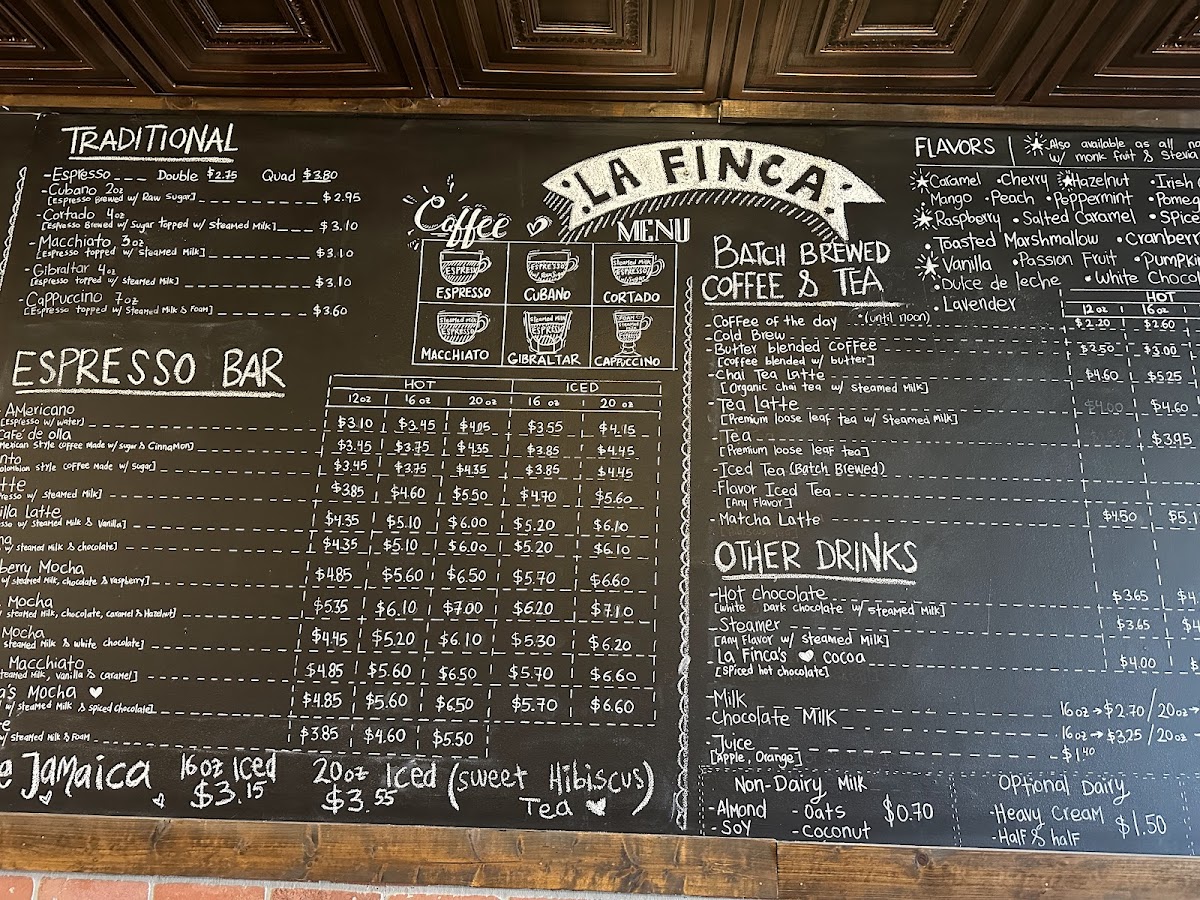 TRADITIONAL
-Espresso Double $2.75 Quad $3.80
-Cubano 2oz
[Espresso Brewed w/ Raw Sugar] $2.95
-Cortado 4oz
[Espresso Brewed w/ Sugar topped w/ Steamed Milk] $3.10
-Macchiato 3oz
[Espresso topped w/ Steamed Milk] $3.10
-Gibraltar 4oz
[Espresso topped w/ Steamed Milk] $3.10
-Cappuccino 7oz
[Espresso topped w/ Steamed Milk & Foam] $3.60
LA FINCA
Coffee MENU
ESPRESSO CUBANO CORTADO
MACCHIATO GIBRALTAR CAPPUCCINO
ESPRESSO BAR
HOT ICED
12oz 16oz 20oz 16oz 20oz
Americano
[Espresso w/ water] $3.10 $3.45 $4.05 $3.55 $4.15
Café de olla
Mexican style coffee made w/ sugar & Cinnamon] $3.45 $3.75 $4.35 $3.85 $4.45
nto
olombian style coffee made w/ sugar] $3.45 $3.75 $4.35 $3.85 $4.45
tte
resso w/ steamed Milk] $3.85 $4.60 $5.50 $4.70 $5.60
illa Latte
sso w/ Steamed Milk & Vanilla] $4.35 $5.10 $6.00 $5.20 $6.10
w/ steamed Milk & chocolate] $4.35 $5.10 $6.00 $5.20 $6.10
berry Mocha
w/ steamed Milk, chocolate & raspberry] $4.85 $5.60 $6.50 $5.70 $6.60
Mocha
steamed Milk, chocolate, caramel & Hazelnut] $5.35 $6.10 $7.00 $6.20 $7.10
Mocha
steamed Milk & white chocolate] $4.45 $5.20 $6.10 $5.30 $6.20
Macchiato
steamed Milk, Vanilla & caramel] $4.85 $5.60 $6.50 $5.70 $6.60
a's Mocha
w/ steamed Milk & spiced chocolate] $4.85 $5.60 $6.50 $5.70 $6.60
e
w/ Steamed Milk & Foam $3.85 $4.60 $5.50
e Jamaica 16oz Iced 20oz Iced (sweet Hibiscus)
$3.15 $3.55 Tea
FLAVORS Also available as all na
w/ monk fruit & Stevia
Caramel •Cherry Hazelnut •Irish
•Mango •Peach •Peppermint •Pome
Raspberry •Salted Caramel •Spice
•Toasted Marshmallow •Cranberr
Vanilla •Passion Fruit •Pumpki
•Dulce de leche •White Choco
•Lavender
BATCH BREWED
COFFEE & TEA
HOT
12oz 16oz
-Coffee of the day *(until noon) $2.20 $2.60
-Cold Brew
-Butter blended coffee $2.50 $3.00
[Coffee blended w/ butter]
-Chai Tea Latte $4.60 $5.25
[Organic chai tea w/ steamed Milk]
-Tea Latte $4.00 $4.60
[Premium loose leaf tea w/ steamed Milk]
-Tea $3.95
[Premium loose leaf tea]
-Iced Tea (Batch Brewed)
-Flavor Iced Tea
[Any Flavor]
-Matcha Latte $4.50 $5.1
OTHER DRINKS
-Hot chocolate $3.65 $4
[White Dark chocolate w/ steamed Milk]
-Steamer $3.65 $4
[Any Flavor w/ steamed Milk]
-La Finca's cocoa $4.00 $
[Spiced hot chocolate]
-Milk 16oz→$2.70/20oz→
-Chocolate Milk 16oz→$3.25/20oz→
-Juice $1.40
[Apple, Orange]
Non-Dairy Milk
-Almond -Oats $0.70
-Soy -Coconut
Optional Dairy
-Heavy Cream $1.50
-Half & half